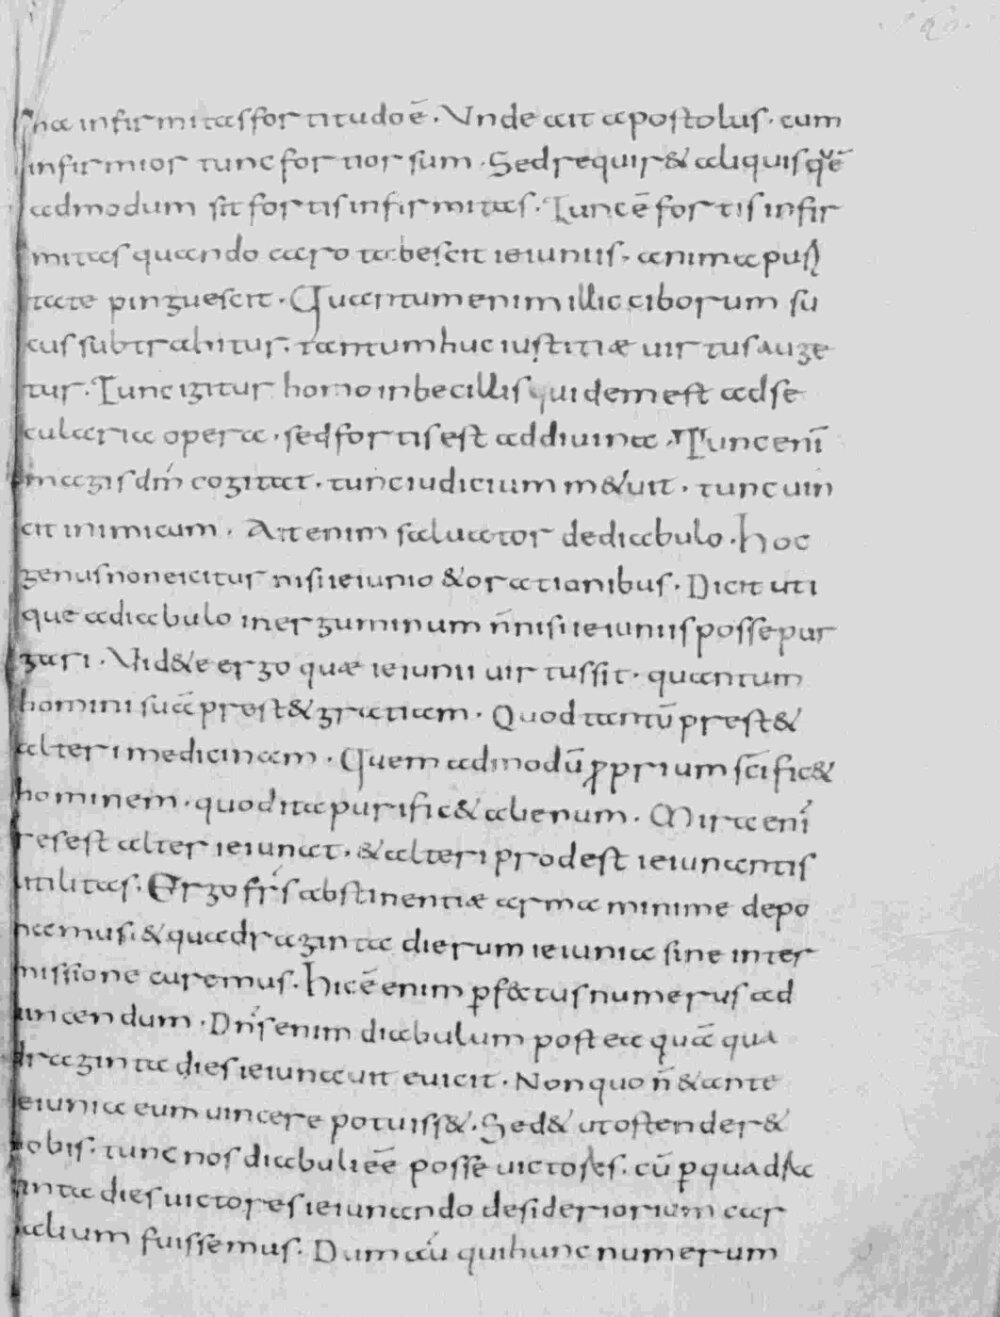 na infirmitas fortitudo ē. Unde ait apostolus. cum
infirmior tunc fortior sum. Sed requir& aliquis quē
admodum sit fortis infirmitas. Tunc ē fortis infir
mitas quando caro tabescit ieiuniis. anima puri
tate pinguescit. Quantum enim illic ciborum su
cus subtrahitur. tantum huc iustitiæ uirtus auge
tur. Tunc igitur homo inbecillis quidem est ad se
cularia opera. sed fortis est ad diuina. Tunc eni̅
magis dm̅ cogitat. tunc iudicium m&uit. tunc uin
cit inimicum. Ait enim saluator de diabulo. hoc
genus non eicitur nisi ieiunio & orationibus. Dicit uti
que a diabulo inerguminum n̅ nisi ieiuniis posse pur
gari. Uid&e ergo quæ ieiunii uirtus sit. quantum
homini suā prest& gratiam. Quod tantū prest&
alteri medicinam. Quem admodū ꝓprium sc̅ific&
hominem. quod ita purific& alienum. Mira eni̅
res est alter ieiunat. & alteri prodest ieiunantis
utilitas. Ergo fr̅s abstinentiæ arma minime depo
namus. & quadraginta dierum ieiunia sine inter
missione curemus. hic ē enim ꝑf&tus numerus ad
uincendum. Dn̅s enim diabulum post ea quā qua
draginta dies ieiunauit euicit. Non quo n̅ & ante
ieiunia eum uincere potuiss&. Sed & ut ostender&
nobis. tunc nos diabuli eē̅ posse uictores. cū ꝑ quadra
ginta dies uictores ieiunando desideriorium car
nalium fuissemus. Dum au̅ qui hunc numerum